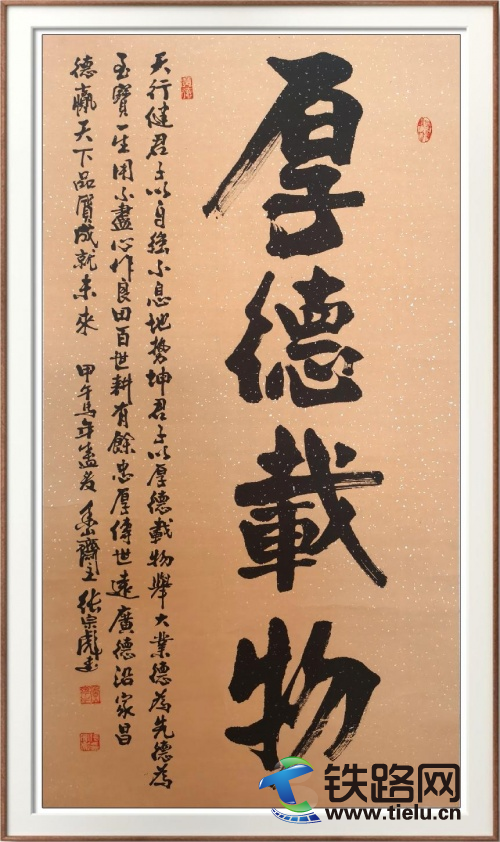 厚德載物
天行健君子以自強不息地勢坤君子以厚德載物舉大業德為先德為
至寶一生用不盡心作良田百世耕有餘忠厚傳世遠廣德沿家昌
德贏天下品質成就未來 甲午馬年孟夏 香山齋主 張宗彪書
铁路网
www.tielu.cn